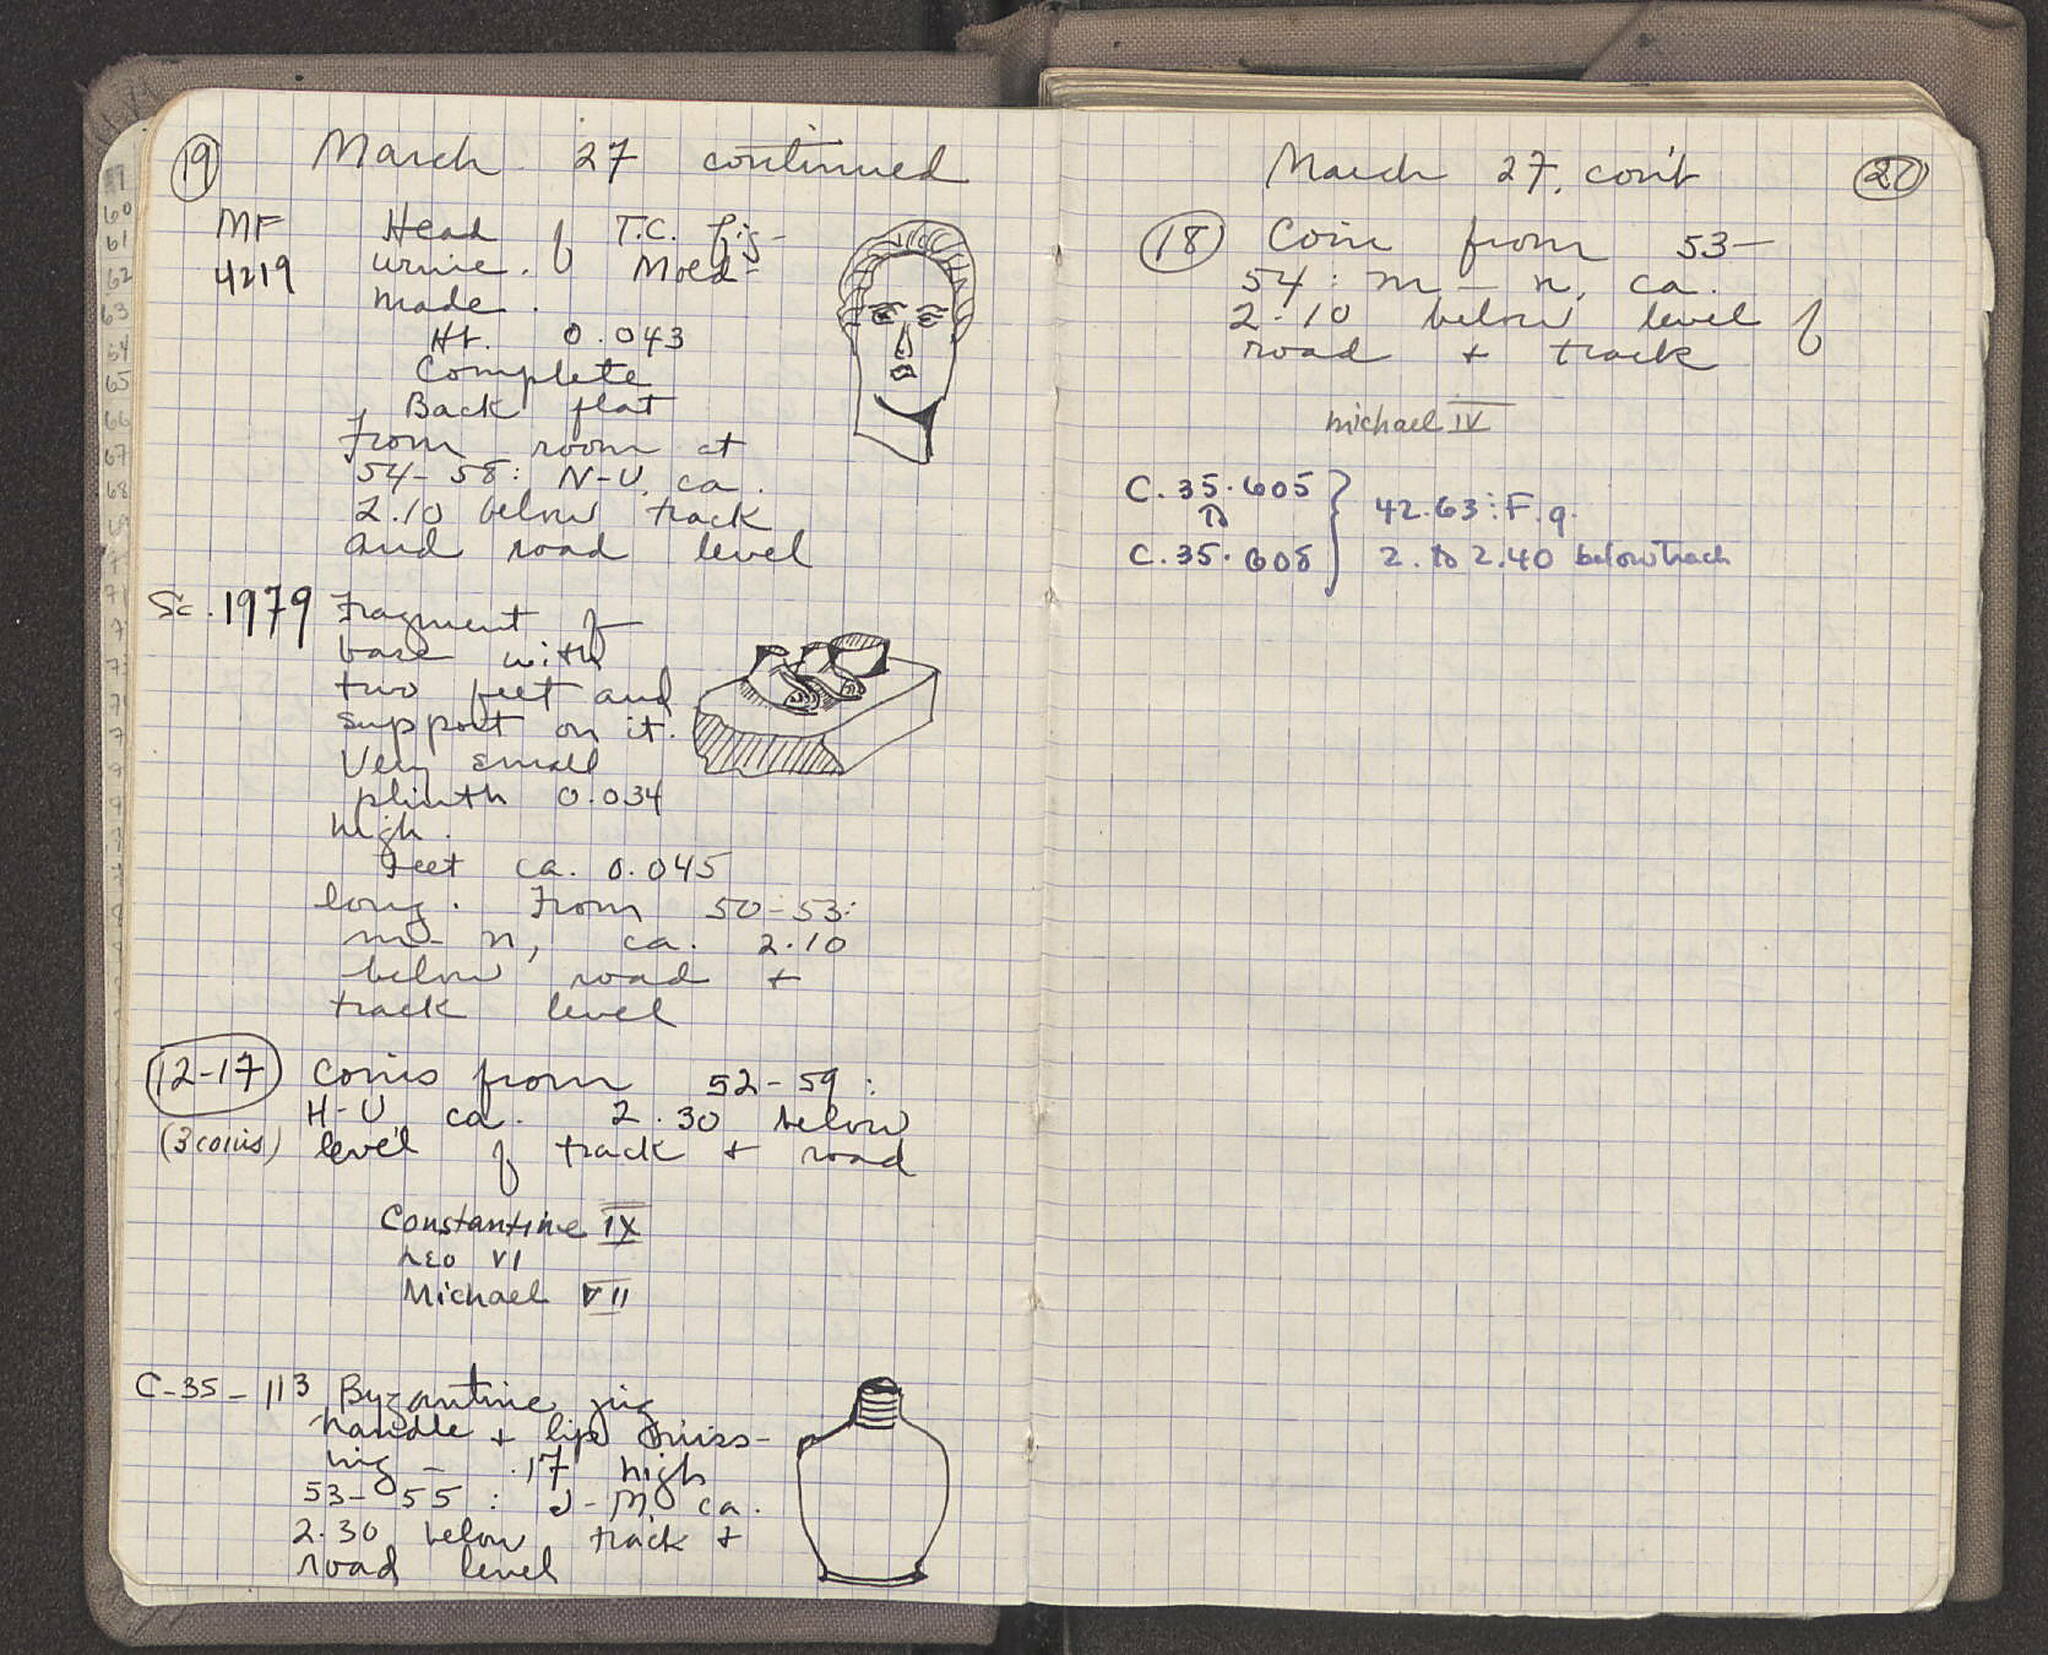 19 March 27 continued
MF Head of T.C. fig-
4219 urine. Mold-
made.
Ht. 0.043
Complete
Back flat
From room at
54-58: N-U, ca.
2.10 below track
and road level
Sc. 1979 Fragment of
base with
two feet and
support on it.
Very small
plinth 0.034
high.
Feet ca. 0.045
long. From 50-53:
m-n, ca. 2.10
below road +
track level
12-17 Coins from 52-59:
H-U, ca. 2.30 below
(3 coins) level of track + road
Constantine IX
Leo VI
Michael VII
C-35-113 Byzantine jug
handle + lip miss-
ing - .17 high
53-55: J-M, ca.
2.30 below track +
road level
March 27, con't 20
18 Coin from 53-
54: m-n, ca.
2.10 below level of
road + track
michael IV
C.35.605
to
C.35.608
42.63:F.q.
2. to 2.40 below track
60
61
62
63
64
65
66
67
68